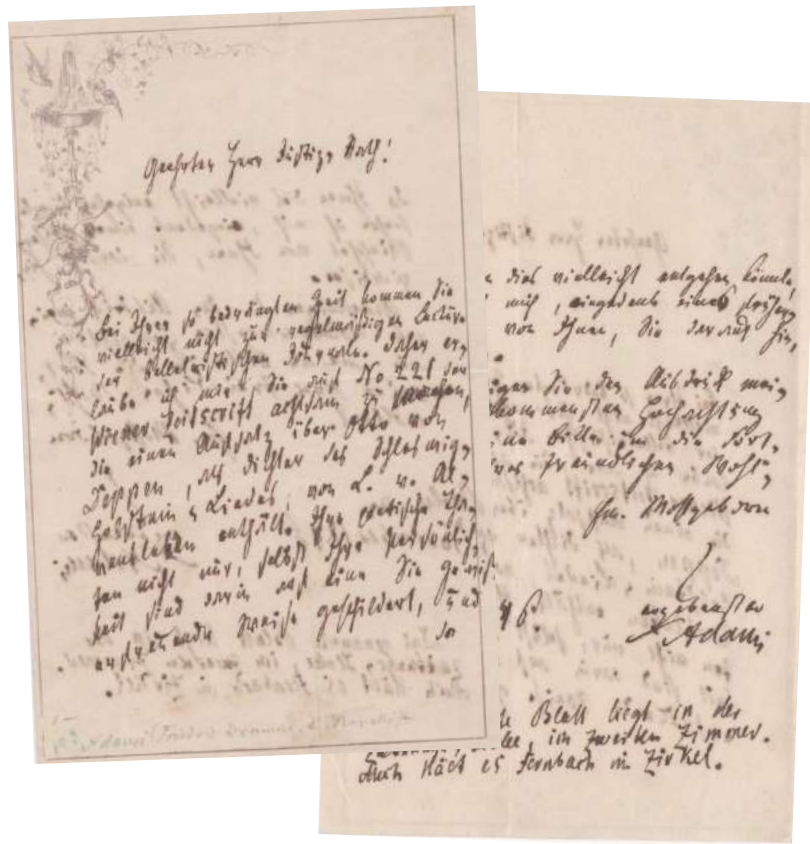 Geehrter Herr Justiz Rath!
Bei Ihrer so bedrängten Zeit kommen Sie
vielleicht nicht zur regelmäßigen Lectüre
der belletristischen Journale. Daher er=
laube ich mir Sie auf No 221 der
Wiener Zeitschrift achtsam zu machen,
die einen Aufsatz über Otto von
Deppen, als Dichter des Schleswig=
Holstein's Liedes, von L. v. Al=
vensleben enthält. Ihre poetische Tha=
ten nicht nur, selbst Ihre Persönlich=
keit sind darin auf eine Sie gewiß
Weise geschildert, und
Adami
dies vielleicht entgehen könnte,
mich, eingedenk eines frühern
von Ihnen, Sie darauf hin,
Sie den Ausdruck mei=
kommensten Hochachtung
Bitte um die Fort=
freundlichen Wohl=
Ew. Wohlgeboren
ergebenster
Adami
Blatt liegt in der
im zweiten Zimmer.
Auch hält es Fernbach im Zirkel.